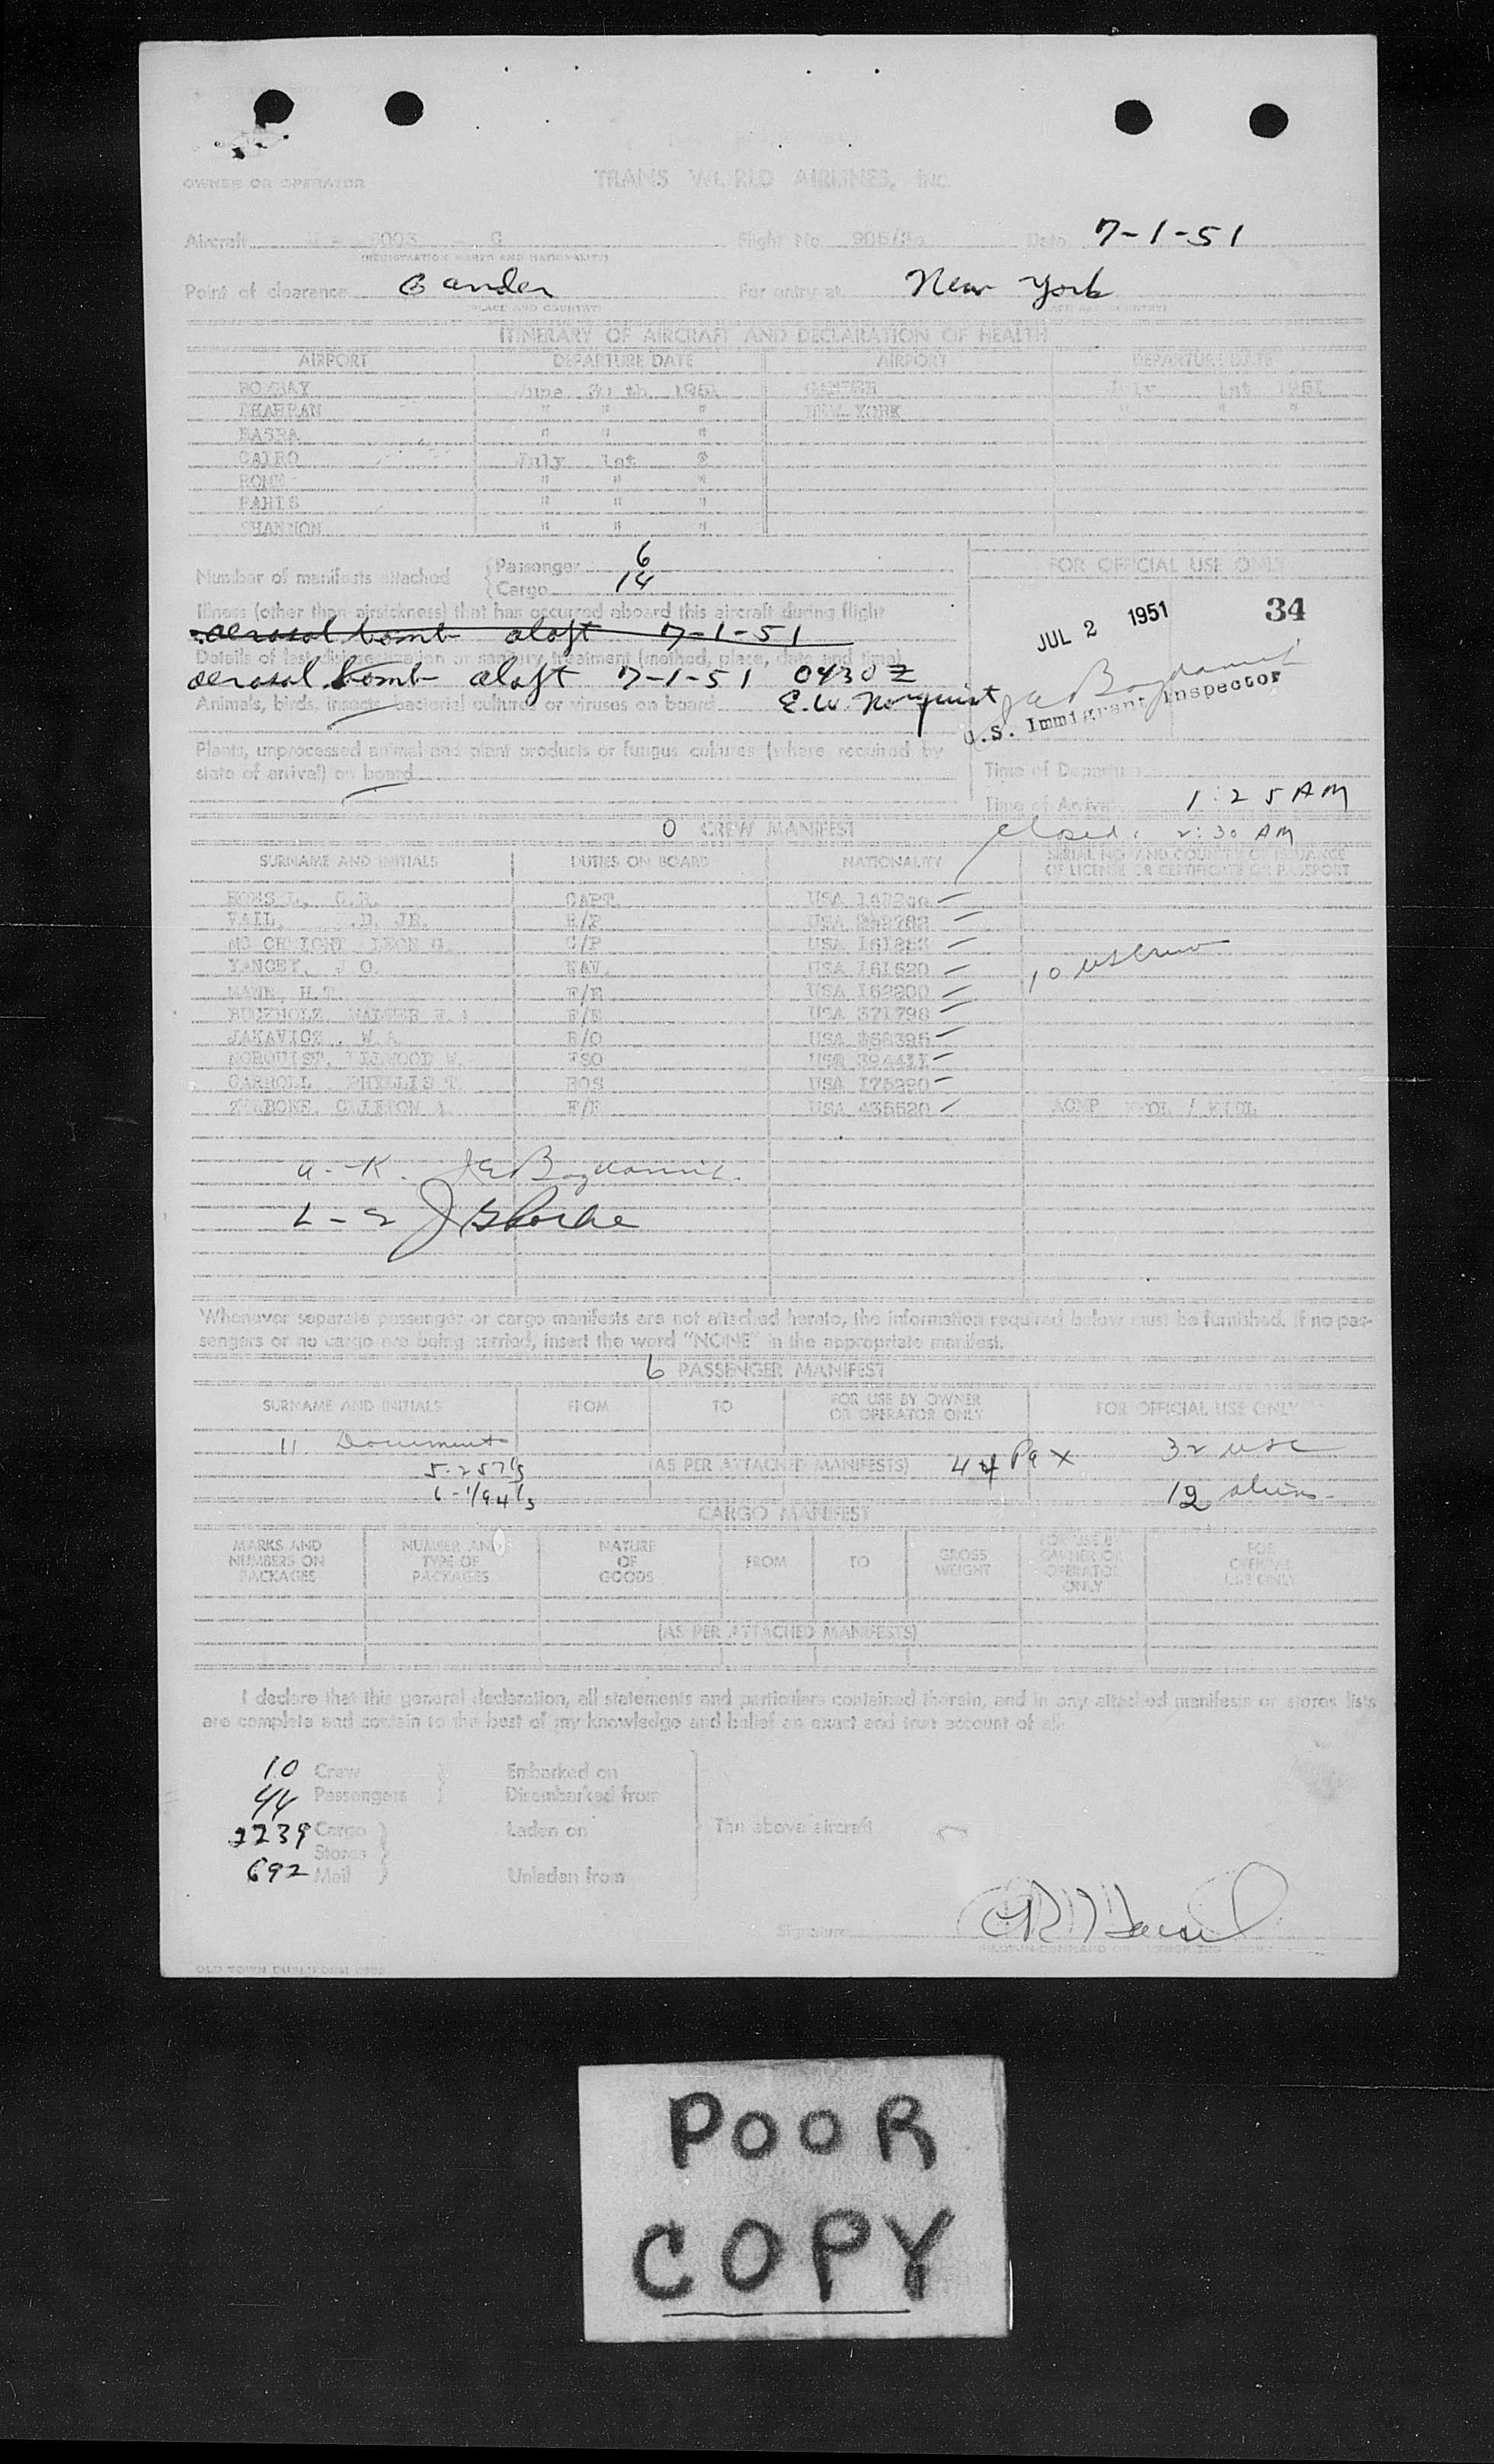 OWNER OR OPERATOR
TRANS WORLD AIRLINES, INC.
Aircraft 6003 C Flight No. 905/30 Date 7-1-51
(REGISTRATION MARKS AND NATIONALITY)
Point of clearance Gander For entry at New York
(PLACE AND COUNTRY) (PLACE AND COUNTRY)
ITINERARY OF AIRCRAFT AND DECLARATION OF HEALTH
AIRPORT DEPARTURE DATE AIRPORT DEPARTURE DATE
BOMBAY June 30 th 1951 GANDER July 1st 1951
DHAHRAN " " " NEW YORK " " "
BASRA " " "
CAIRO July 1st "
ROME " " "
PARIS " " "
SHANNON " " "
Number of manifests attached { Passenger 6
Cargo 14
FOR OFFICIAL USE ONLY
Illness (other than airsickness) that has occurred aboard this aircraft during flight
JUL 2 1951 34
aerosol bomb aloft 7-1-51
Details of last disinsectization or sanitary treatment (method, place, date and time)
aerosol bomb aloft 7-1-51 0430Z
E.W. Norquist
Animals, birds, insects, bacterial cultures or viruses on board
U.S. Immigrant Inspector
Plants, unprocessed animal and plant products or fungus cultures (where required by
state of arrival) on board
Time of Departure
Time of Arrival 1:25 AM
closed: 2:30 AM
0 CREW MANIFEST
SURNAME AND INITIALS DUTIES ON BOARD NATIONALITY SERIAL NO. AND COUNTRY OF ISSUANCE
OF LICENSE OR CERTIFICATE OR PASSPORT
CAPT. USA
VAIL, JR. USA
MC CREIGHT LEON G. USA
YANCEY, J O. NAV. USA 161520
MANN, H.T. F/E USA 162200
BUCKHOLZ, WALTER F/E USA 371798
JAKAVICZ, W.A. R/O USA
NORQUIST, ELLWOOD W. FSO USA 394411
CARROLL PHYLLIS T. HOS USA 175290
CLIFTON A. F/E USA 435520
10 US Crew
A-K.
L-Z
Whenever separate passenger or cargo manifests are not attached hereto, the information required below must be furnished. If no pas-
sengers or no cargo are being carried, insert the word "NONE" in the appropriate manifest.
6 PASSENGER MANIFEST
SURNAME AND INITIALS FROM TO FOR USE BY OWNER
OR OPERATOR ONLY FOR OFFICIAL USE ONLY
11 Documents
(AS PER ATTACHED MANIFESTS) 44 Pax 32 USC
5-257's
6-I/94's 12 aliens
CARGO MANIFEST
MARKS AND
NUMBERS ON
PACKAGES NUMBER AND
TYPE OF
PACKAGES NATURE
OF
GOODS FROM TO GROSS
WEIGHT FOR USE BY
OWNER OR
OPERATOR
ONLY FOR
OFFICIAL
USE ONLY
(AS PER ATTACHED MANIFESTS)
I declare that this general declaration, all statements and particulars contained therein, and in any attached manifests or stores lists
are complete and contain to the best of my knowledge and belief an exact and true account of all:
10 Crew } Embarked on
44 Passengers } Disembarked from
2239 Cargo } Laden on The above aircraft
Stores }
692 Mail } Unladen from
Signature
OLD TOWN DUPLIFORM
POOR
COPY